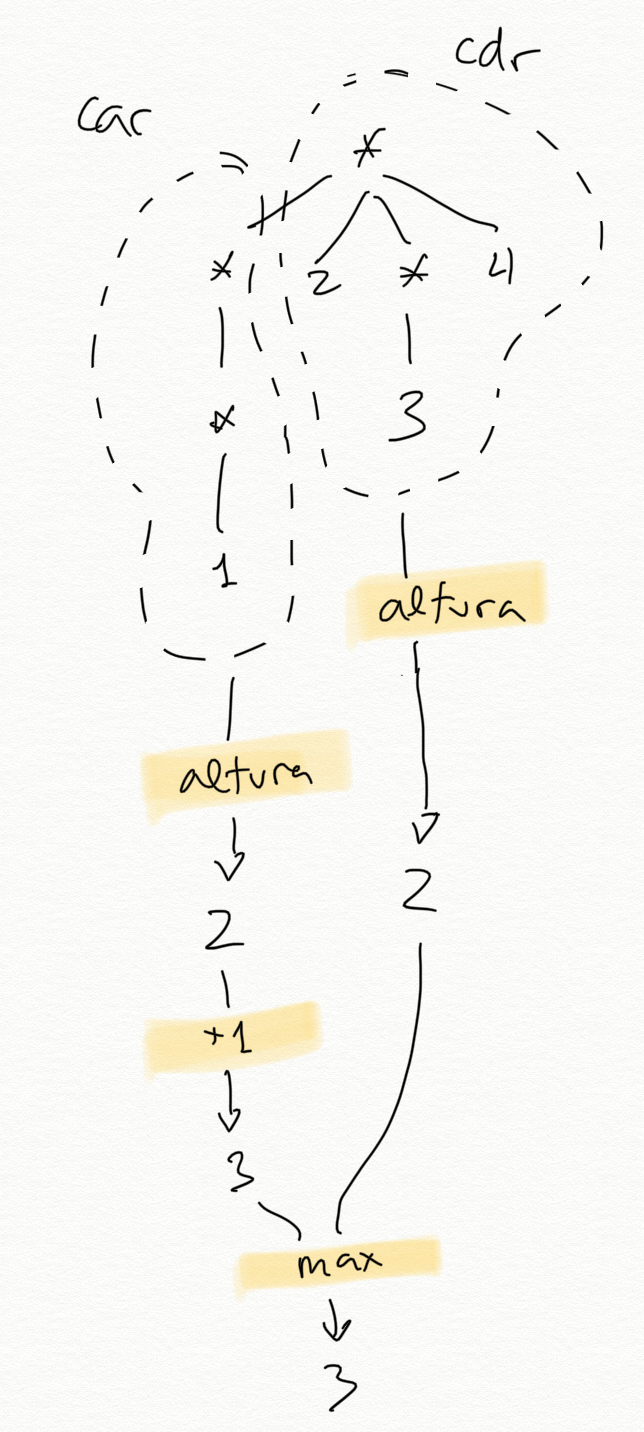 cdr
car
*
* 2 * 4
* 3
1
altura
altura
2
2
+1
3
max
3